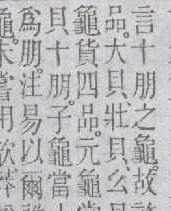 言十朋之龜。故
品。大貝、壯貝、幺貝
龜貨四品。元龜
貝十朋。子龜當
為朋。注易以爾
龜。未嘗用歆莽